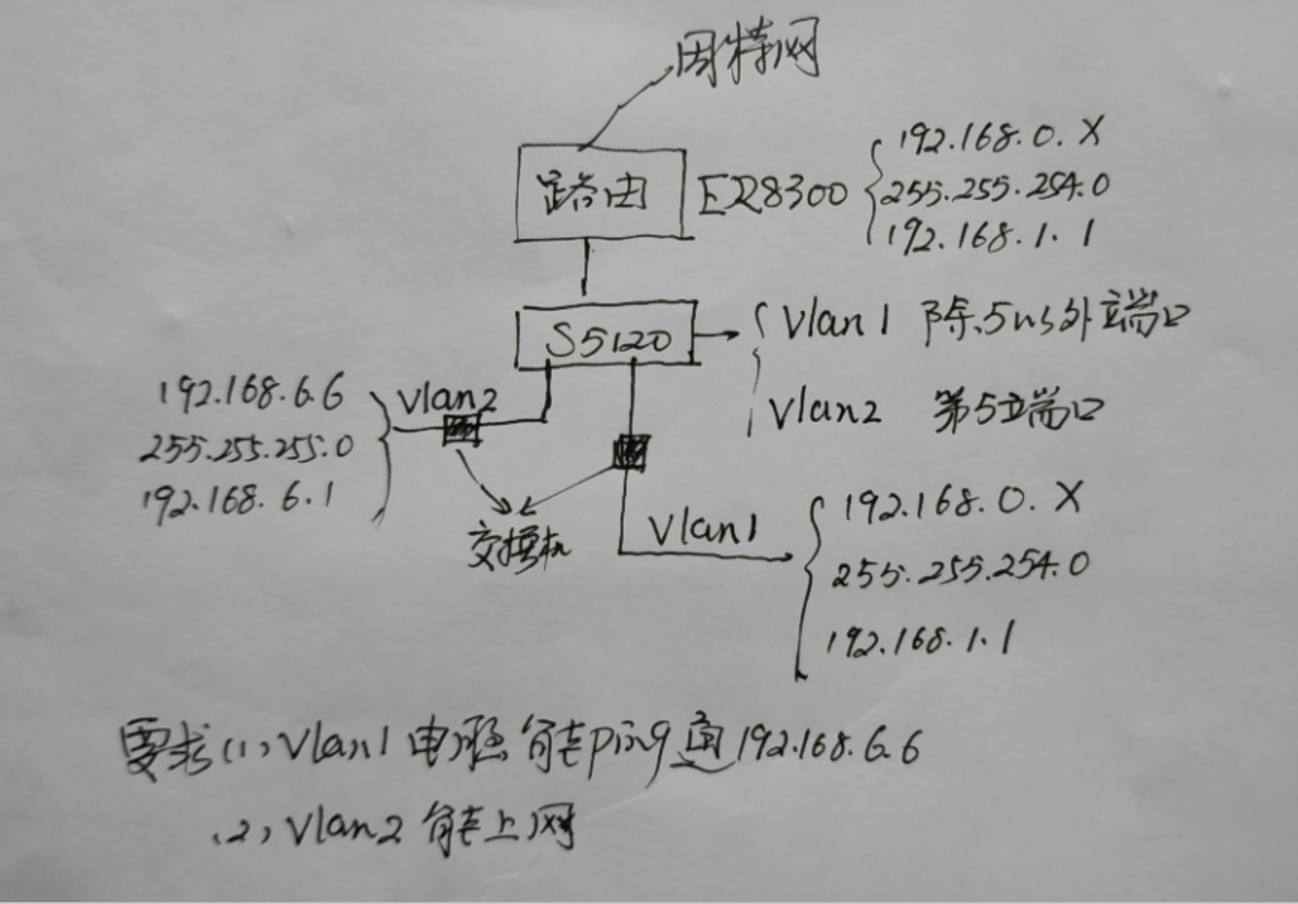 因特网
路由
ER8300
192.168.0.X
255.255.254.0
192.168.1.1
S5120
Vlan1 除5以外端口
Vlan2 第5端口
192.168.6.6
255.255.255.0
192.168.6.1
vlan2
交换机
Vlan1
192.168.0.X
255.255.254.0
192.168.1.1
要求(1)Vlan1电脑能ping通192.168.6.6
(2)Vlan2能上网